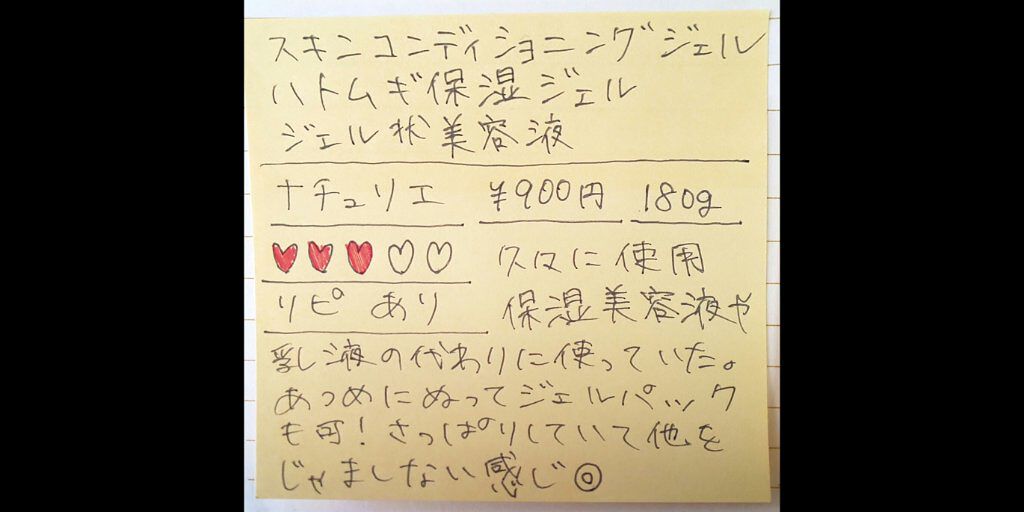 スキンコンディショニングジェル
ハトムギ保湿ジェル
ジェル状美容液
ナチュリエ ¥900円 180g
♥♥♥♡♡ 久々に使用
リピ あり 保湿美容液や
乳液の代わりに使っていた。
あつめにぬってジェルパック
も可！さっぱりしていて他を
じゃましない感じ◎